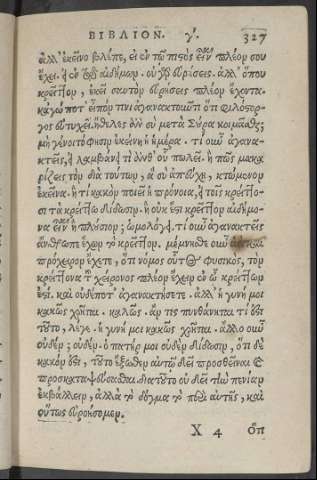 ΒΙΒΛΙΟΝ. γ'. 327
ἀλλ' ἐκεῖνο βλέπε, εἰ ἐν τῷ πιστὸς εἶναι πλέον σου
ἔχει. ἢ ἐν τῷ αἰδήμων. οὐ γὰρ εὑρήσεις. ἀλλ' ὅπου
κρείττων, ἐκεῖ σαυτὸν εὑρήσεις πλέον ἔχοντα.
κἀγώ ποτ' εἶπόν τινι ἀγανακτοῦντι ὅτι Φιλόστορ-
γος εὐτυχεῖ. ἤθελες ἂν σὺ μετὰ Σύρα κοιμᾶσθαι;
μὴ γένοιτό φησιν ἐκείνη ἡ ἡμέρα. τί οὖν ἀγανα-
κτεῖς, εἰ λαμβάνει τι ἀνθ' οὗ πωλεῖ. ἢ πῶς μακα
ρίζεις τὸν διὰ τούτων, ἃ σὺ ἀπεύχῃ, κτώμενον
ἐκεῖνα. ἢ τί κακὸν ποιεῖ ἡ πρόνοια, εἰ τοῖς κρείττο-
σι τὰ κρείττω δίδωσιν. ἢ οὐκ ἔστι κρεῖττον αἰδήμο-
να εἶναι ἢ πλούσιον; ὡμολόγει. τί οὖν ἀγανακτεῖς
ἄνθρωπε ἔχων τὸ κρεῖττον. μέμνησθε οὖν ἀεὶ καὶ
πρόχειρον ἔχετε, ὅτι νόμος οὗτος φυσικὸς, τὸν
κρείττονα τοῦ χείρονος πλέον ἔχειν ἐν ᾧ κρείττων
ἐστί. καὶ οὐδέποτ' ἀγανακτήσετε. ἀλλ' ἡ γυνή μοι
κακῶς χρῆται. καλῶς. ἄν τις πυνθάνηται τί ἐστι
τοῦτο, λέγε. ἡ γυνή μοι κακῶς χρῆται. ἄλλο οὖν
οὐδέν; οὐδέν. ὁ πατήρ μοι οὐδὲν δίδωσιν, ὅτι δὲ
κακόν ἐστι, τοῦτο ἔξωθεν αὐτῷ δεῖ προσθεῖναι &
προσκαταψεύσασθαι. διὰ τοῦτο οὐ δεῖ τὴν πενίαν
ἐκβάλλειν, ἀλλὰ τὸ δόγμα τὸ περὶ αὐτῆς, καὶ
οὕτως εὐροήσομεν.
X 4 ὅπ